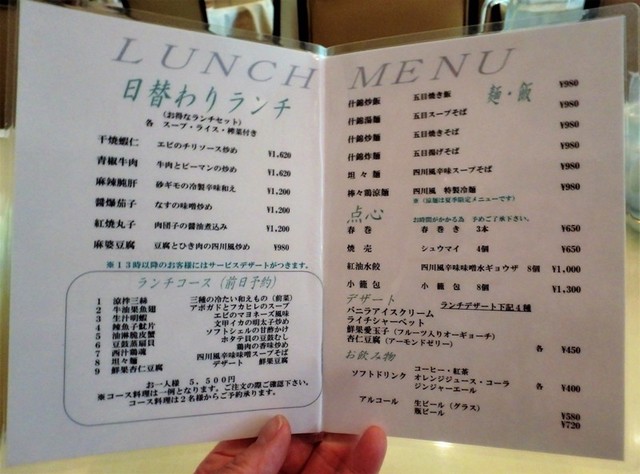 LUNCH MENU
日替わりランチ
(お得なランチセット)
各 スープ・ライス・搾菜付き
干焼蝦仁 エビのチリソース炒め ¥1,620
青椒牛肉 牛肉とピーマンの炒め ¥1,620
麻辣肫肝 砂ギモの冷製辛味和え ¥1,200
醤爆茄子 なすの味噌炒め ¥1,200
紅焼丸子 肉団子の醤油煮込み ¥1,200
麻婆豆腐 豆腐とひき肉の四川風炒め ¥980
※13時以降のお客様にはサービスデザートがつきます。
ランチコース(前日予約)
1 涼拌三絲 三種の冷たい和えもの(前菜)
2 牛油果魚翅 アボガドとフカヒレのスープ
3 生汁明蝦 エビのマヨネーズ風味
4 辣魚子魷片 文甲イカの明太子炒め
5 油淋脆皮蟹 ソフトシェルの甘酢かけ
6 豆豉蒸扇貝 ホタテ貝の豆鼓むし
7 西汁鶏魂 鶏肉の香味炒め
8 坦々麺 四川風辛味味噌スープそば
9 鮮果杏仁豆腐 デザート 鮮果豆腐
お一人様 5,500円
※コース料理は一例となります。ご注文の際ご確認下さい。
コース料理は2名様からご予約承ります。
麺・飯
什錦炒飯 五目焼き飯 ¥980
什錦湯麺 五目スープそば ¥980
什錦炒麺 五目焼きそば ¥980
什錦炸麺 五目揚げそば ¥980
坦々麺 四川風辛味スープそば ¥980
棒々鶏涼麺 四川風 特製冷麺 ¥980
※(涼麺は夏季限定メニューです)
点心 お時間がかかる為 予めご了承下さい。
春巻 春巻き 3本 ¥650
焼売 シュウマイ 4個 ¥650
紅油水餃 四川風辛味味噌水ギョウザ 8個 ¥1,000
小籠包 小籠包 8個 ¥1,300
デザート ランチデザート下記4種
バニラアイスクリーム
ライチシャーベット
鮮果愛玉子(フルーツ入りオーギョーチ)
杏仁豆腐(アーモンドゼリー) 各 ¥450
お飲み物
ソフトドリンク コーヒー・紅茶
オレンジジュース・コーラ
ジンジャーエール 各 ¥400
アルコール 生ビール(グラス) ¥580
瓶ビール ¥720